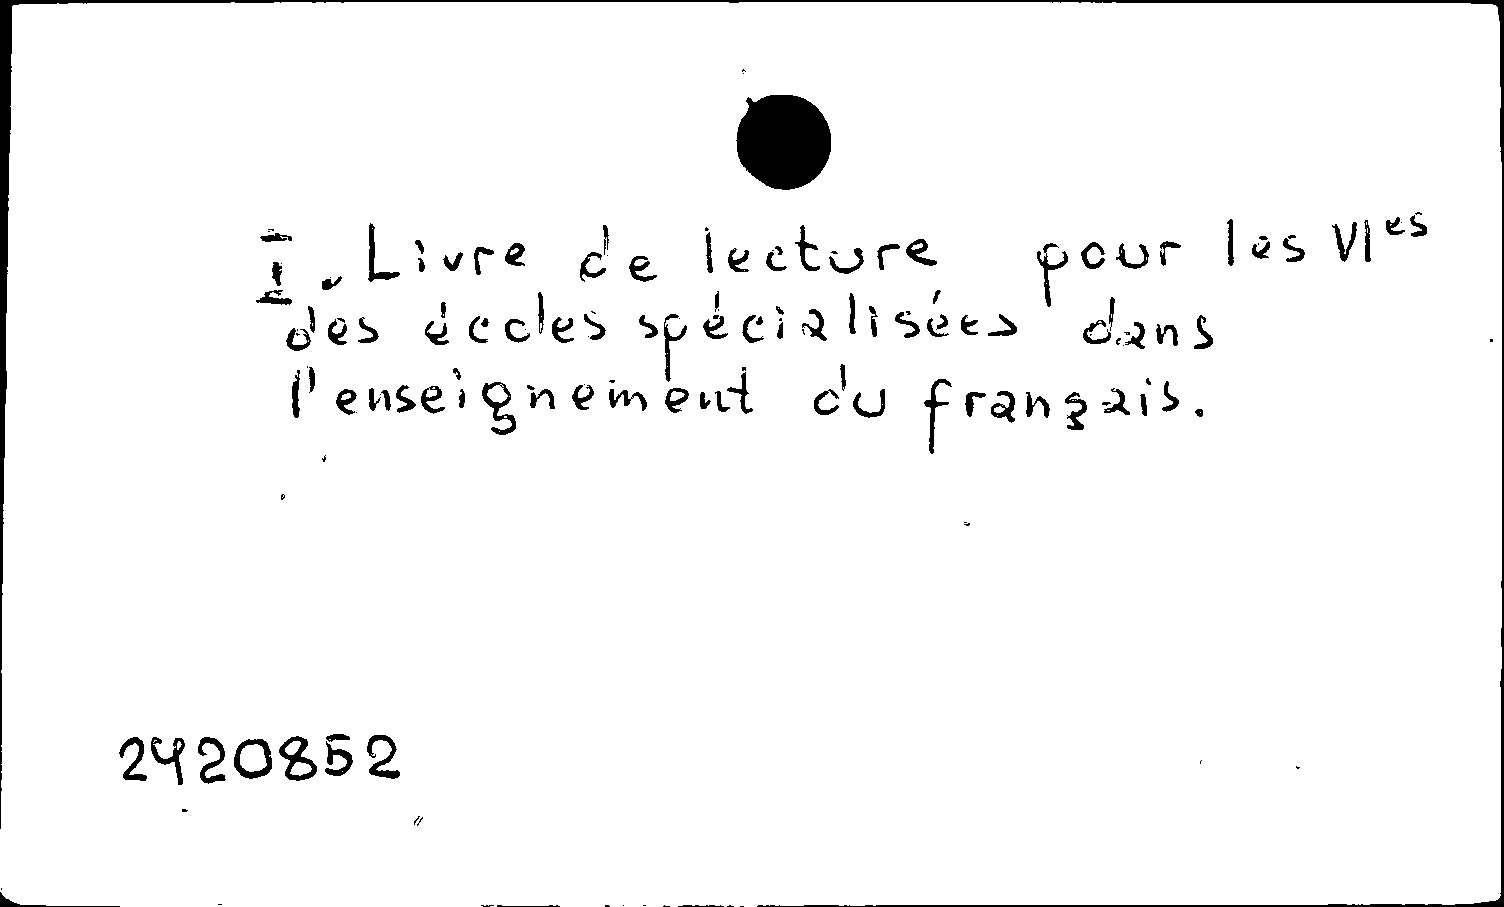 I. Livre de lecture pour les VIes
des écoles spécialisées dans
l'enseignement du français.
2420852